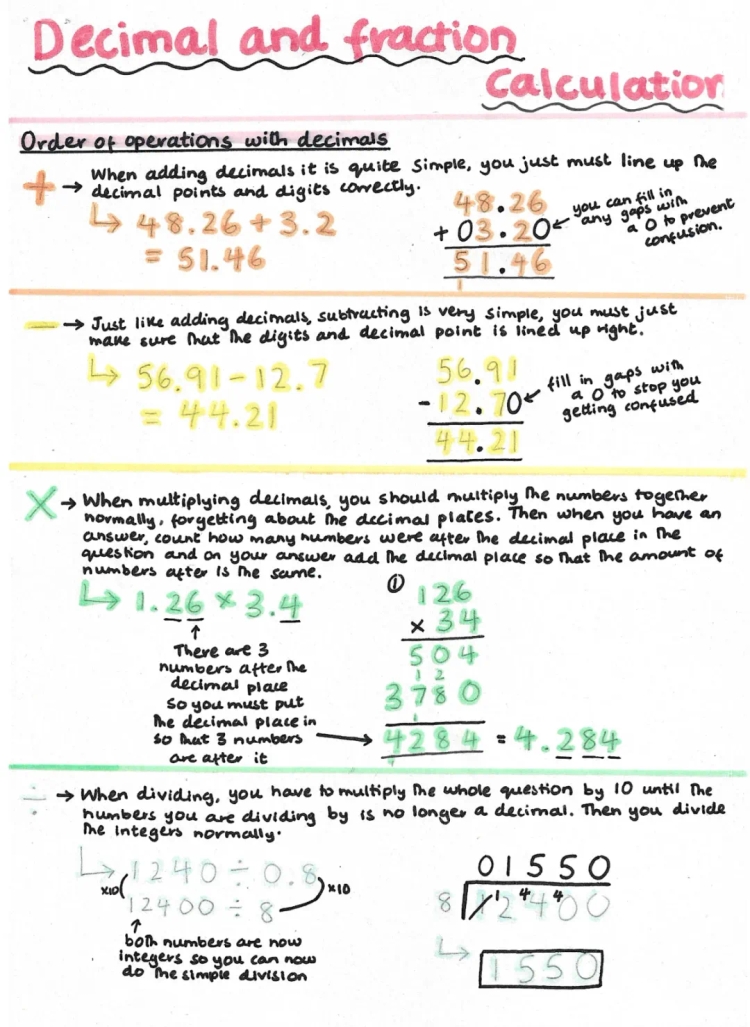 Decimal and fraction
Calculation
Order of operations with decimals
+ → When adding decimals it is quite simple, you just must line up the
decimal points and digits correctly.
↳ 48.26 + 3.2
= 51.46
48.26
+ 03.20
51.46
1
← you can fill in
any gaps with
a 0 to prevent
confusion.
— → Just like adding decimals, subtracting is very simple, you must just
make sure that the digits and decimal point is lined up right.
↳ 56.91 - 12.7
= 44.21
56.91
- 12.70
44.21
← fill in gaps with
a 0 to stop you
getting confused
× → When multiplying decimals, you should multiply the numbers together
normally, forgetting about the decimal places. Then when you have an
answer, count how many numbers were after the decimal place in the
question and on your answer add the decimal place so that the amount of
numbers after is the same.
↳ 1.26 × 3.4
↑
There are 3
numbers after the
decimal place
so you must put
the decimal place in
so that 3 numbers
are after it
①
126
× 34
504
1 2
3780
1
→ 4284 = 4.284
1
÷ → When dividing, you have to multiply the whole question by 10 until the
numbers you are dividing by is no longer a decimal. Then you divide
the integers normally.
↳ 1240 ÷ 0.8
×10 ×10
12400 ÷ 8
↑
both numbers are now
integers so you can now
do the simple division
01550
8 1 ¹2 ⁴4 ⁴00
↳ 1550